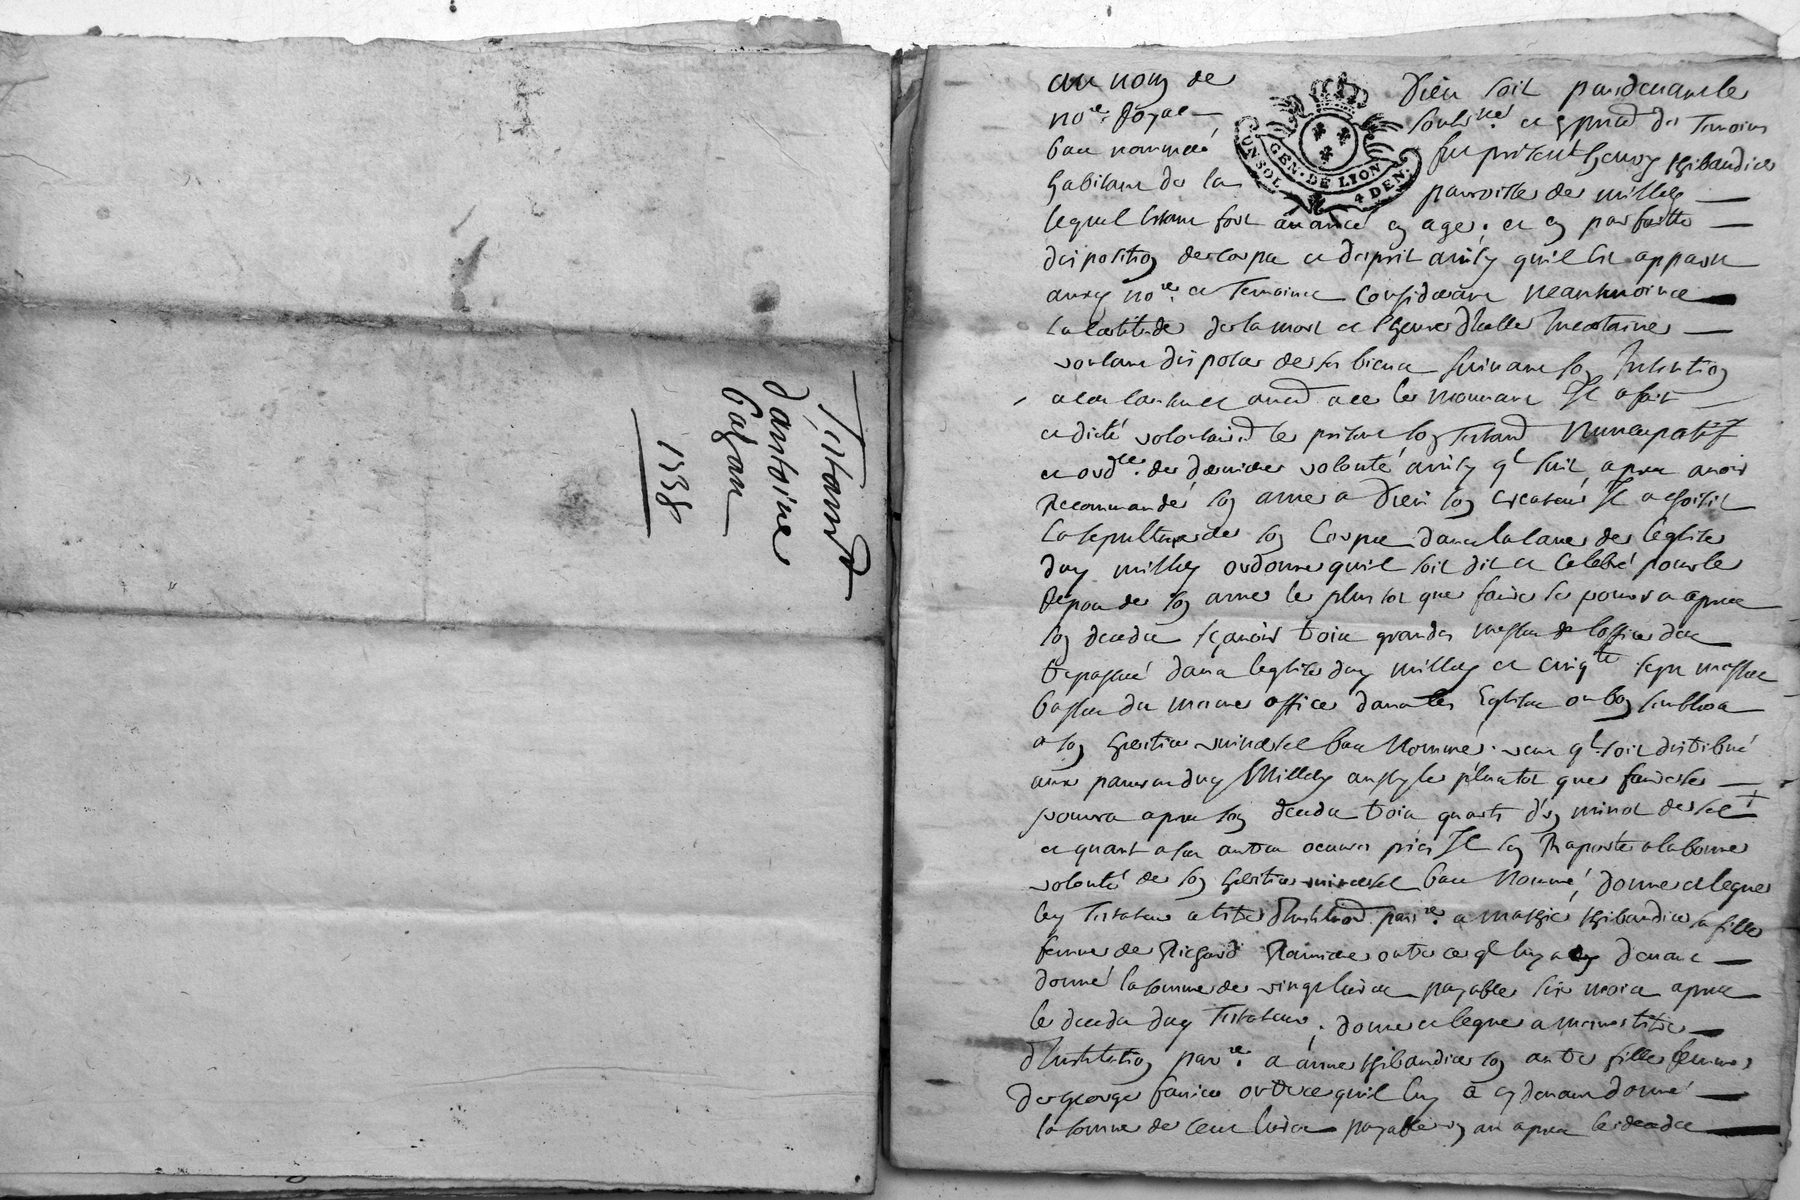 Testamt
d'antoine
Cafan
1738
au nom de Dieu soit pardevant le
nore. Royal soubsné. et en pñce des Temoins
bas nommés fut present henry thibaudier
habitant de la parroisse de millery
lequel estant fort avancé en age. et en parfaitte
disposition de corps et desprit ainsy quil est apparu
auxy nore. et Temoins Considerant neantmoins
la certitude de la mort et l'heure d'icelle Incertaine
voulant disposer de ses biens suivant son Intention
il a fait
et dicté volontairemt le present son Testamt Nuncupatif
et ordce. de derniere volonté ainsy ql suit, apres avoir
Recommandé son ame a Dieu son createur Il a choisit
la sepulture de son Corps dans la lave de leglise
duy millery ordonne quil soit dit et Celebré pour le
Repos de son ame le plustot que faire se pourra apres
son deceds sçavoir trois grandes messes de loffice des
trepassés dans leglise duy millery et cinqte sept messes
basses du meme office dans les Eglises ou bon semblera
a son heritier universel bas Nommé. veut ql soit distribué
aux pauvres duy Millery aussy le plustot que faire se
pourra apres son deceds trois quarts d'un minot de sel
et quant a ses autres oeuvres pies Il sen Raporte a la bonne
volonté de son heritier universel bas Nommé, donne et legue
ley Testateur a titre d'Institutiod. parre. a thibaudier sa fille
femme de Richard outre ce ql luy a cy devant
donné la somme de vingt livres payable six mois apres
le deceds duy Testateur, donne et legue a meme titre
d'Institution parre. a anne thibaudier son autre fille femme
de george outre ce quil luy a cy devant donné
la somme de cent livres payable un an apres le deceds
GEN. DE LION
4 DEN.